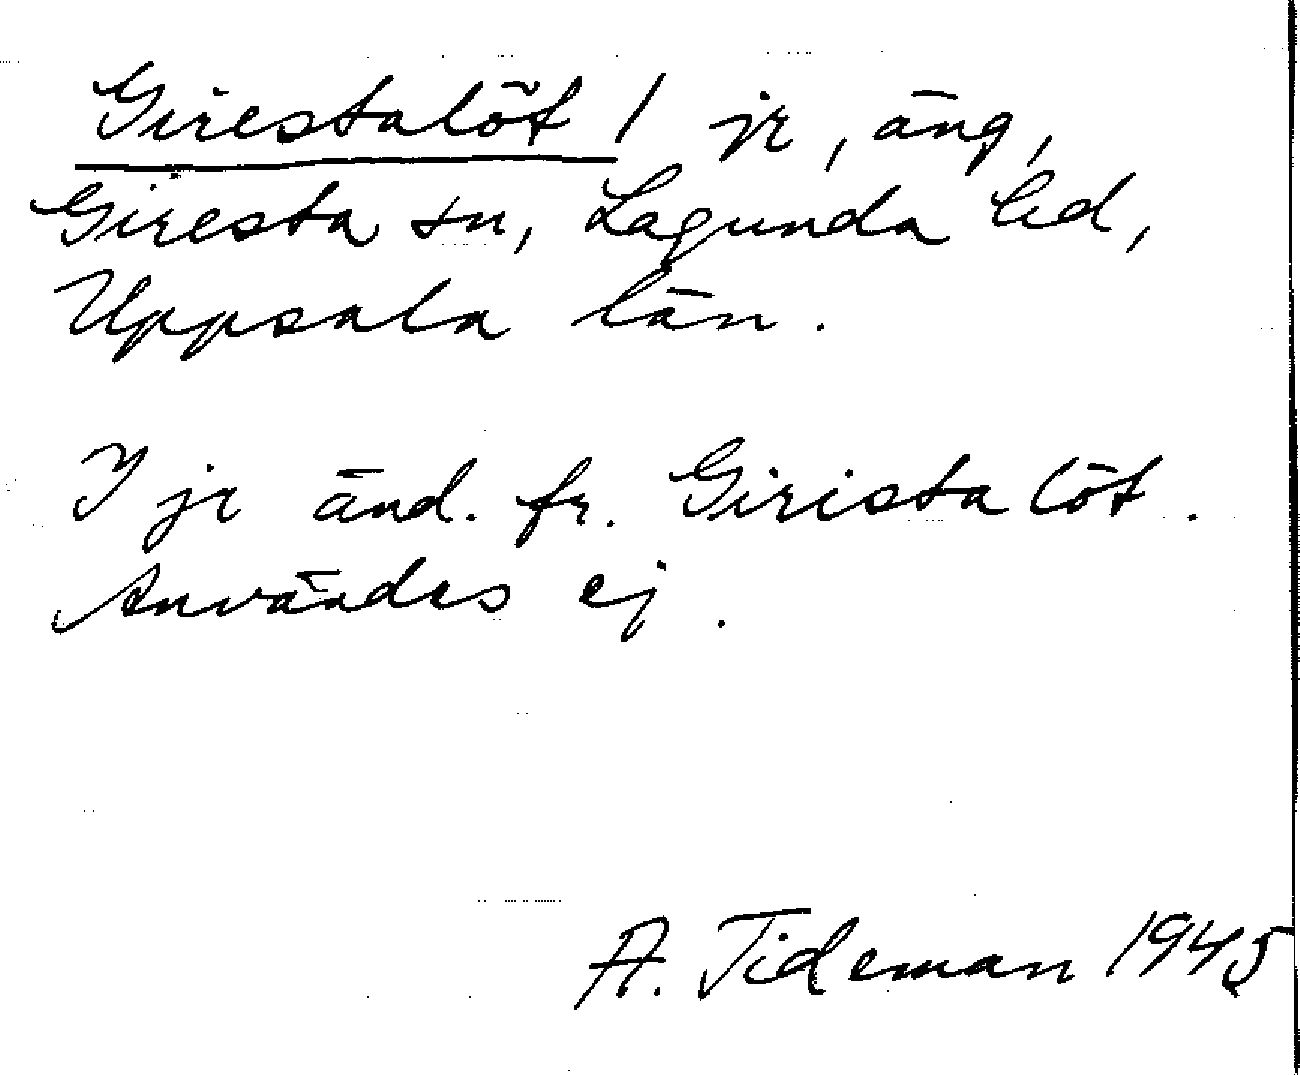 Girestalöt / jr, äng,
Giresta sn, Lagunda hd,
Uppsala län.
I jr änd. fr. Girista löt.
Användes ej.
A. Tideman 1945